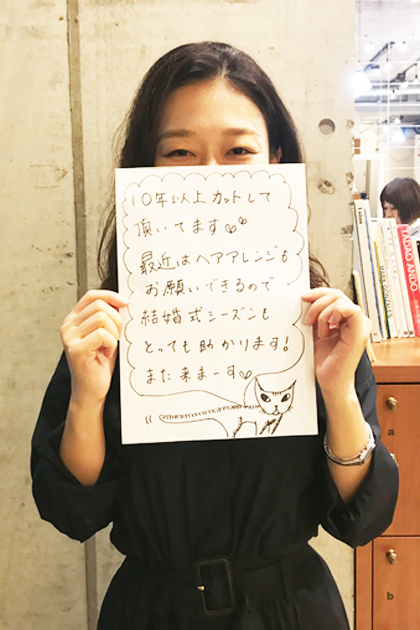 10年以上カットして
頂いてます♡♡
最近はヘアアレンジも
お願いできるので
結婚式シーズンも
とっても助かります!
また来まーす♡
TADAO ANDO
a
b